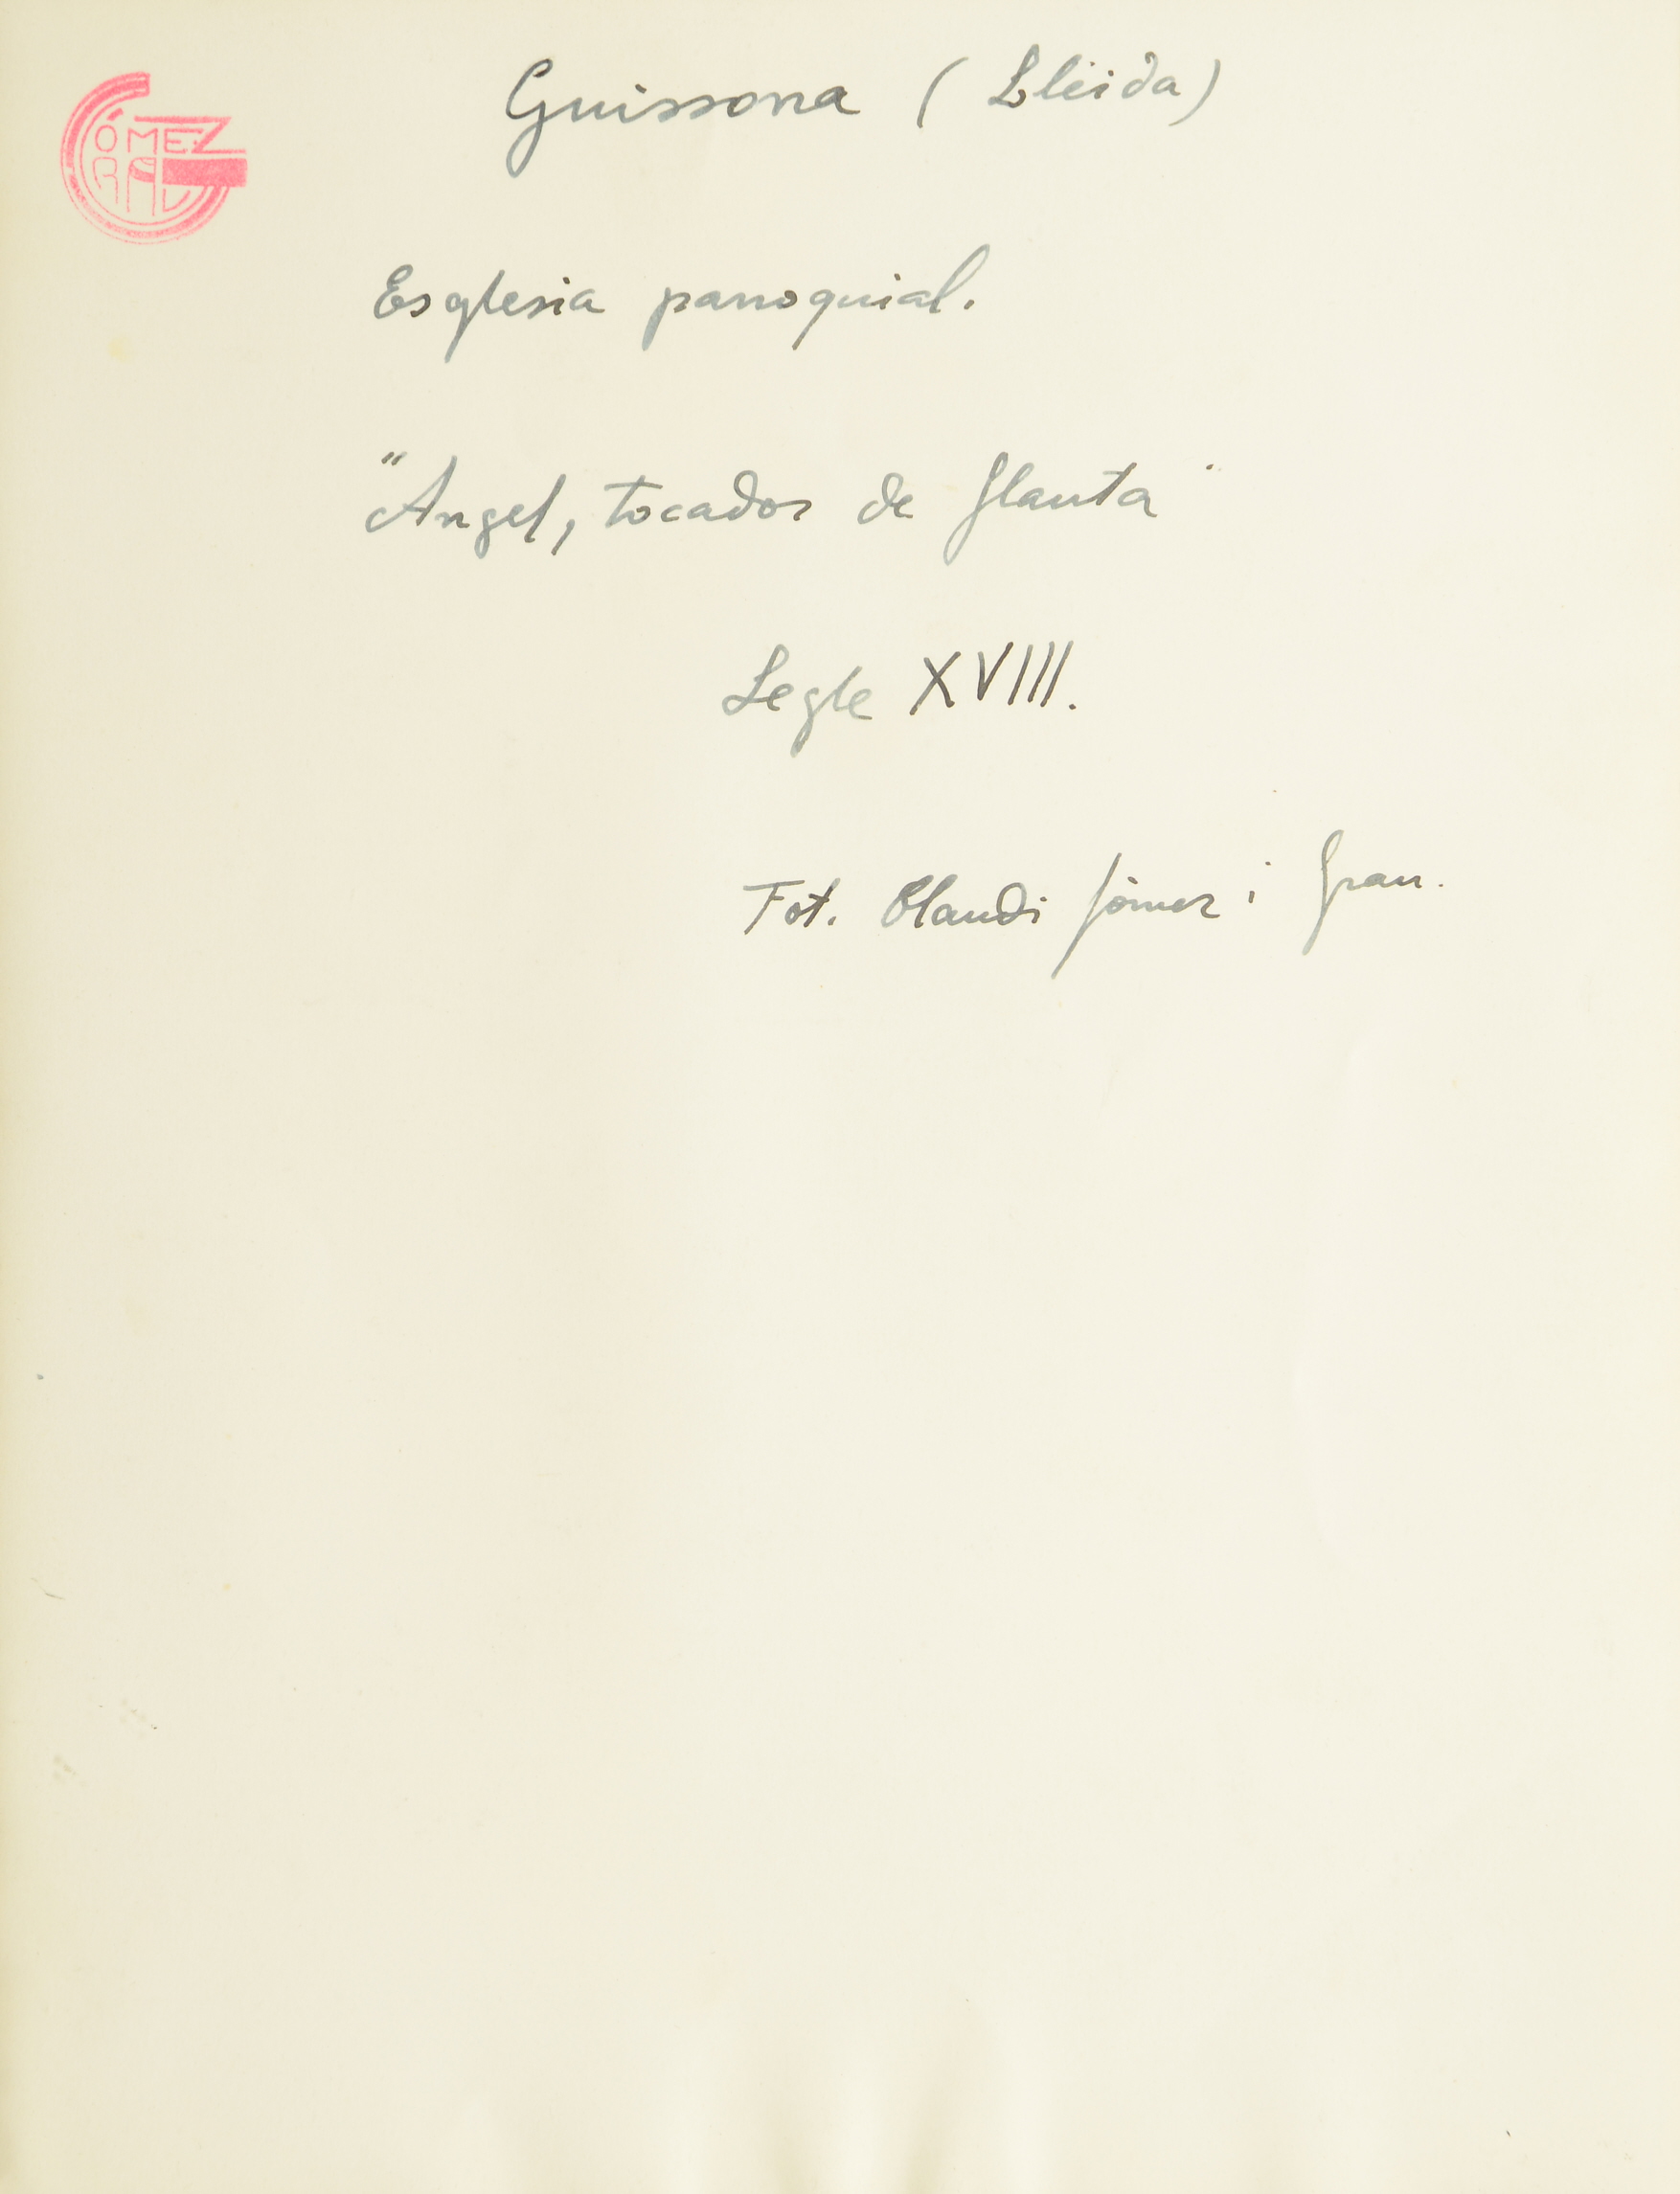 GÓMEZ
GRAU
Guissona (Lleida)
Esglesia parroquial.
"Angel, tocador de flauta"
Segle XVIII.
Fot. Claudi Gómez i Grau.